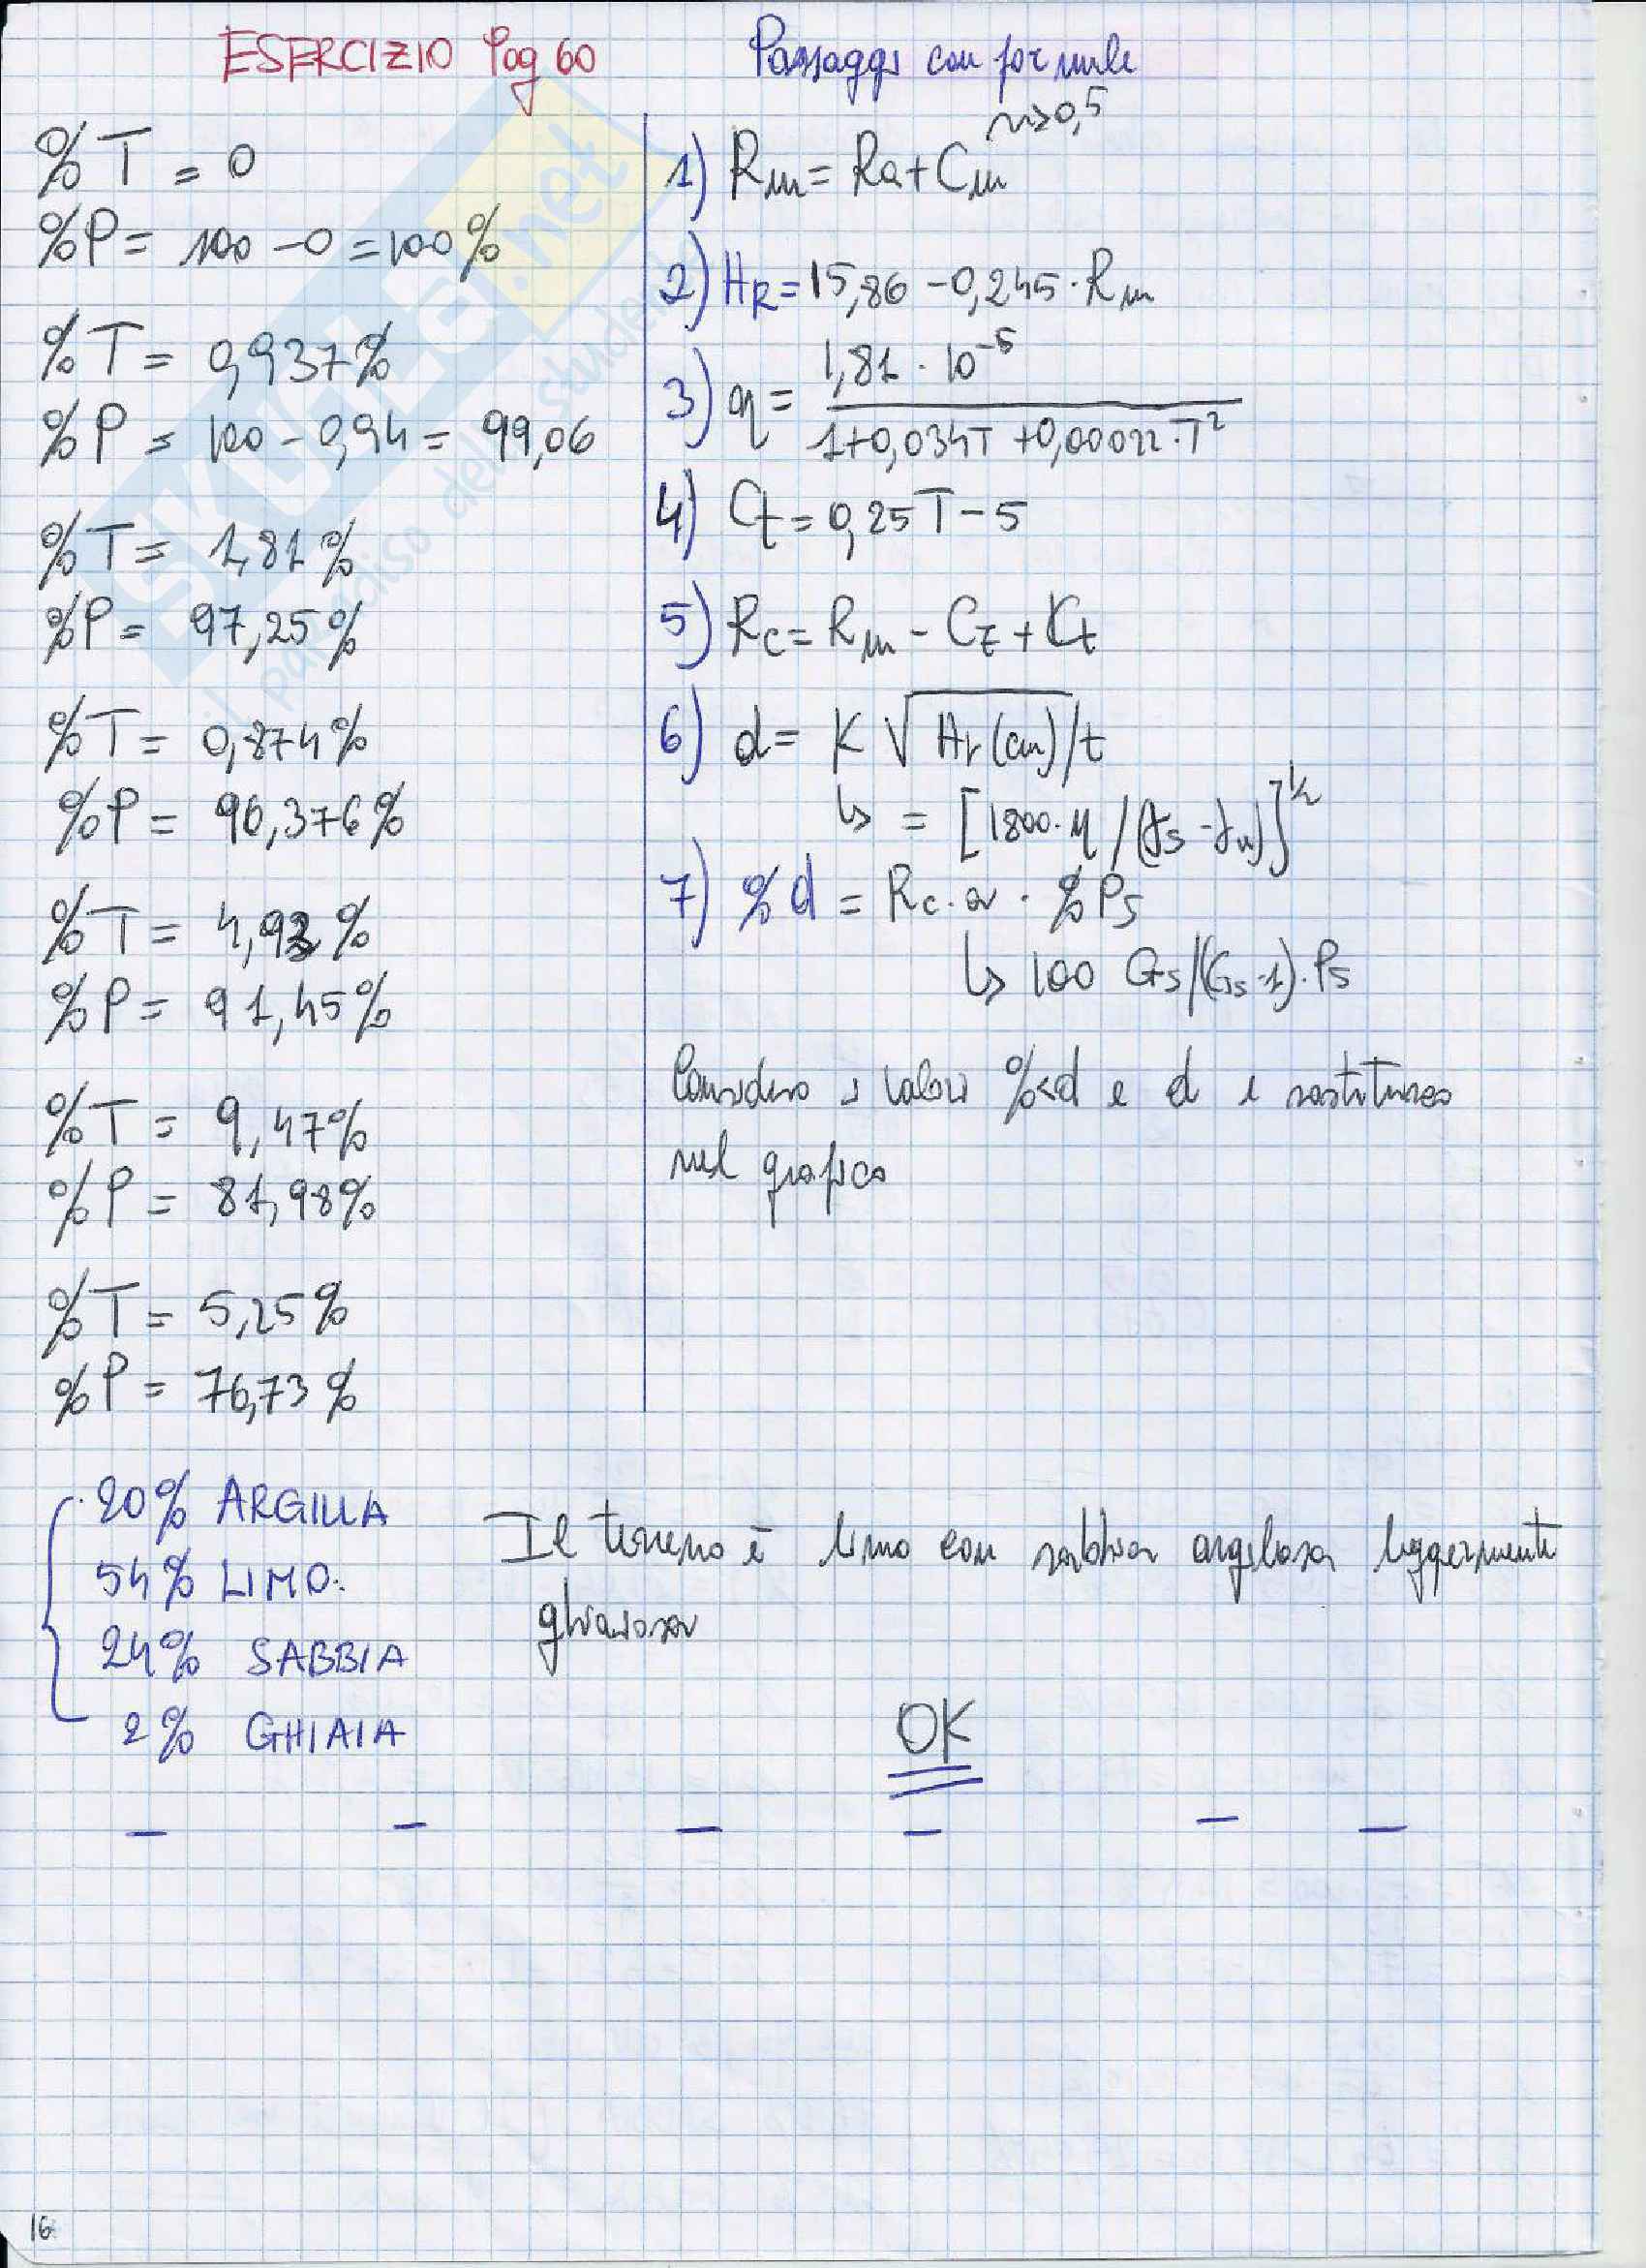 ESERCIZIO Pag 60
%T = 0
%P = 100 - 0 = 100%
%T = 0,937%
%P = 100 - 0,94 = 99,06
%T = 1,81%
%P = 97,25%
%T = 0,874%
%P = 96,376%
%T = 4,93%
%P = 91,45%
%T = 9,47%
%P = 81,98%
%T = 5,25%
%P = 76,73%
Passaggi con formule
1) Rm = Ra + Cm → 0,5
2) HR = 15,86 - 0,245 · Rm
3) η = 1,81 · 10^-5 / 1+0,034T + 0,00022 · T²
4) Ct = 0,25T - 5
5) Rc = Rm - Cz + Ct
6) d = K √Hr(cm)/t
↳ = [1800 · η / (γs - γw)]^½
7) %d = Rc · a · %Ps
↳ 100 Gs/(Gs-1) · Ps
Considero i valori %<d e d e sostituisco
nel grafico
20% ARGILLA
54% LIMO
24% SABBIA
2% GHIAIA
Il terreno è limo con sabbia argilosa leggermente
ghiaiosa
OK
16
SKUOLA.net
il paradiso dello studente